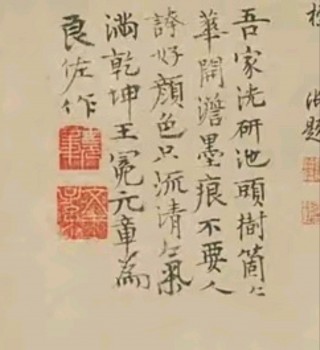 題
吾家洗研池頭樹箇〻
華開澹墨痕不要人
誇好顏色只流清氣
滿乾坤王冕元章為
良佐作